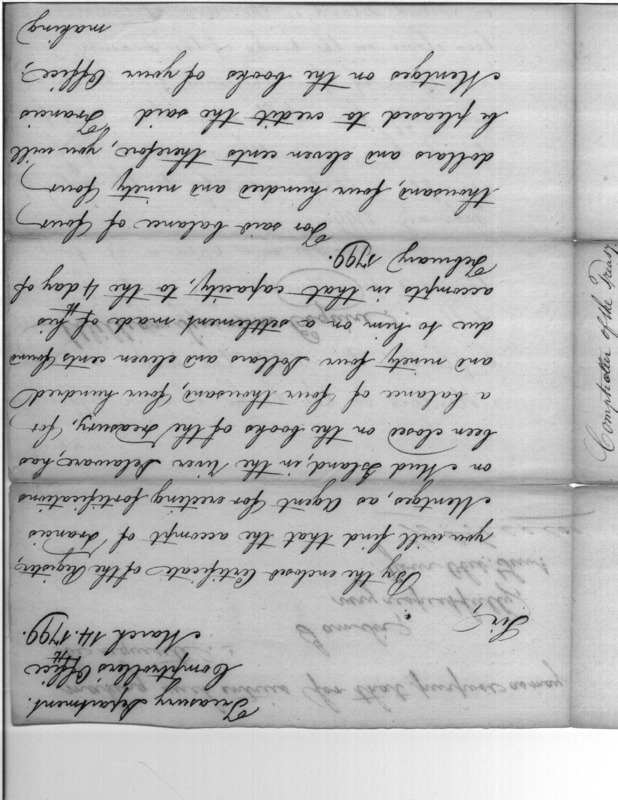 Treasury Department.
Comptrollers Office
March 14th 1799.
Sir,
By the enclosed Certificate of the Register,
you will find that the accompt of Francis
Mentges, as Agent for erecting fortifications
on Mud Island, in the river Delaware, has
been closed on the books of the Treasury, for
a balance of four thousand, four hundred
and ninety four Dollars and eleven cents found
due to him on a settlement made of his
accompts in that capacity, to the 4th day of
February 1799.
For said balance of four
thousand, four hundred and ninety four
dollars and eleven cents therefore, you will
be pleased to credit the said Francis
Mentges on the books of your Office,
making
Comptroller of the Treasy.
for that purpose as may
very respectfully,